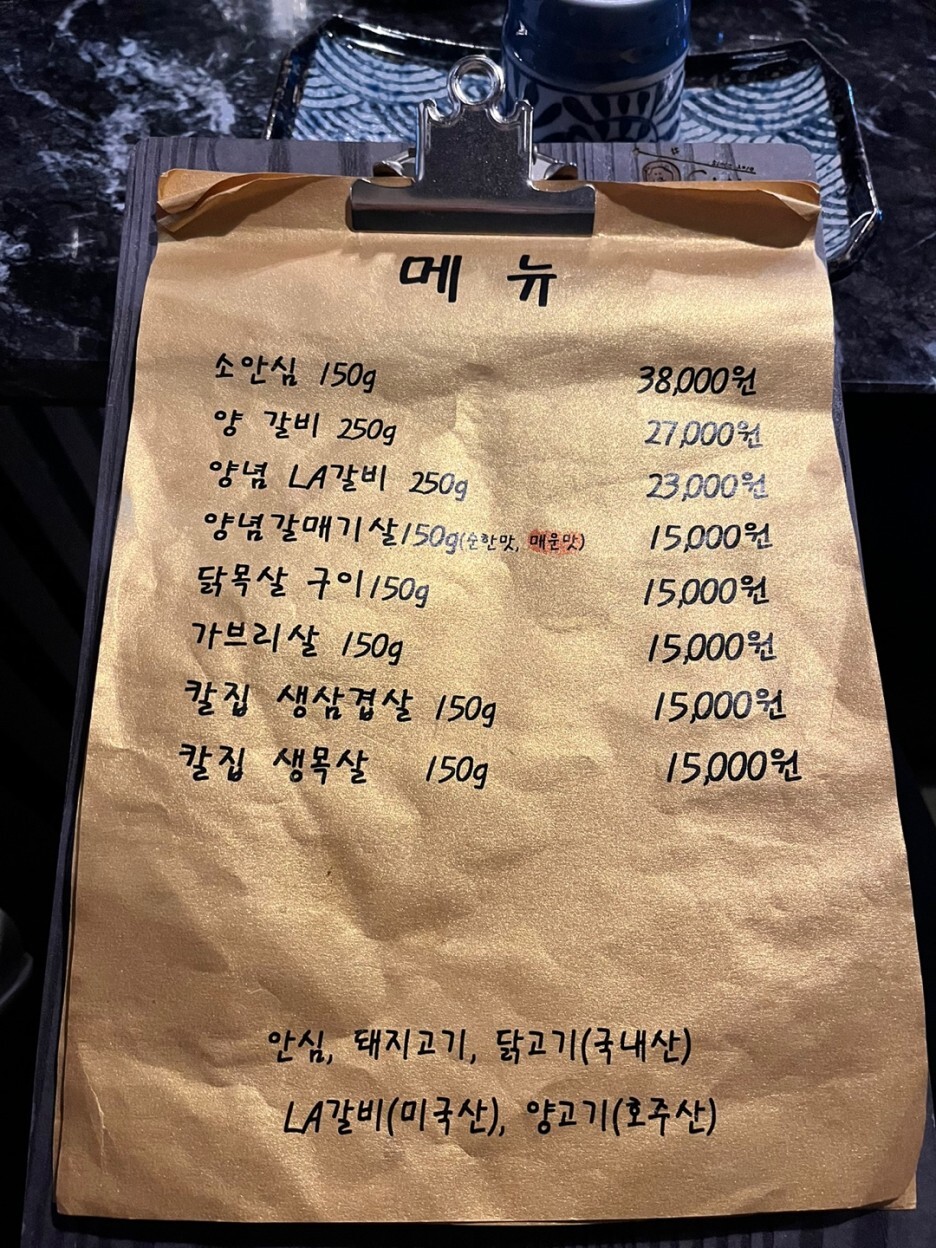 메뉴
소안심 150g 38,000원
양 갈비 250g 27,000원
양념 LA갈비 250g 23,000원
양념갈매기살150g(순한맛, 매운맛) 15,000원
닭목살 구이150g 15,000원
가브리살 150g 15,000원
칼집 생삼겹살 150g 15,000원
칼집 생목살 150g 15,000원
안심, 돼지고기, 닭고기(국내산)
LA갈비(미국산), 양고기(호주산)